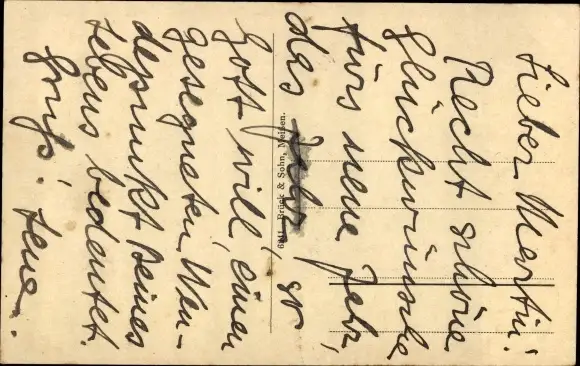 Lieber Martin!
Recht schöne
Glückwünsche
fürs neue Jahr,
das Jahr, so
Gott will, einen
gesegneten Wen-
depunkt Deines
Lebens bedeutet.
Gruß! Lene.
6241 Brück & Sohn, Meißen.